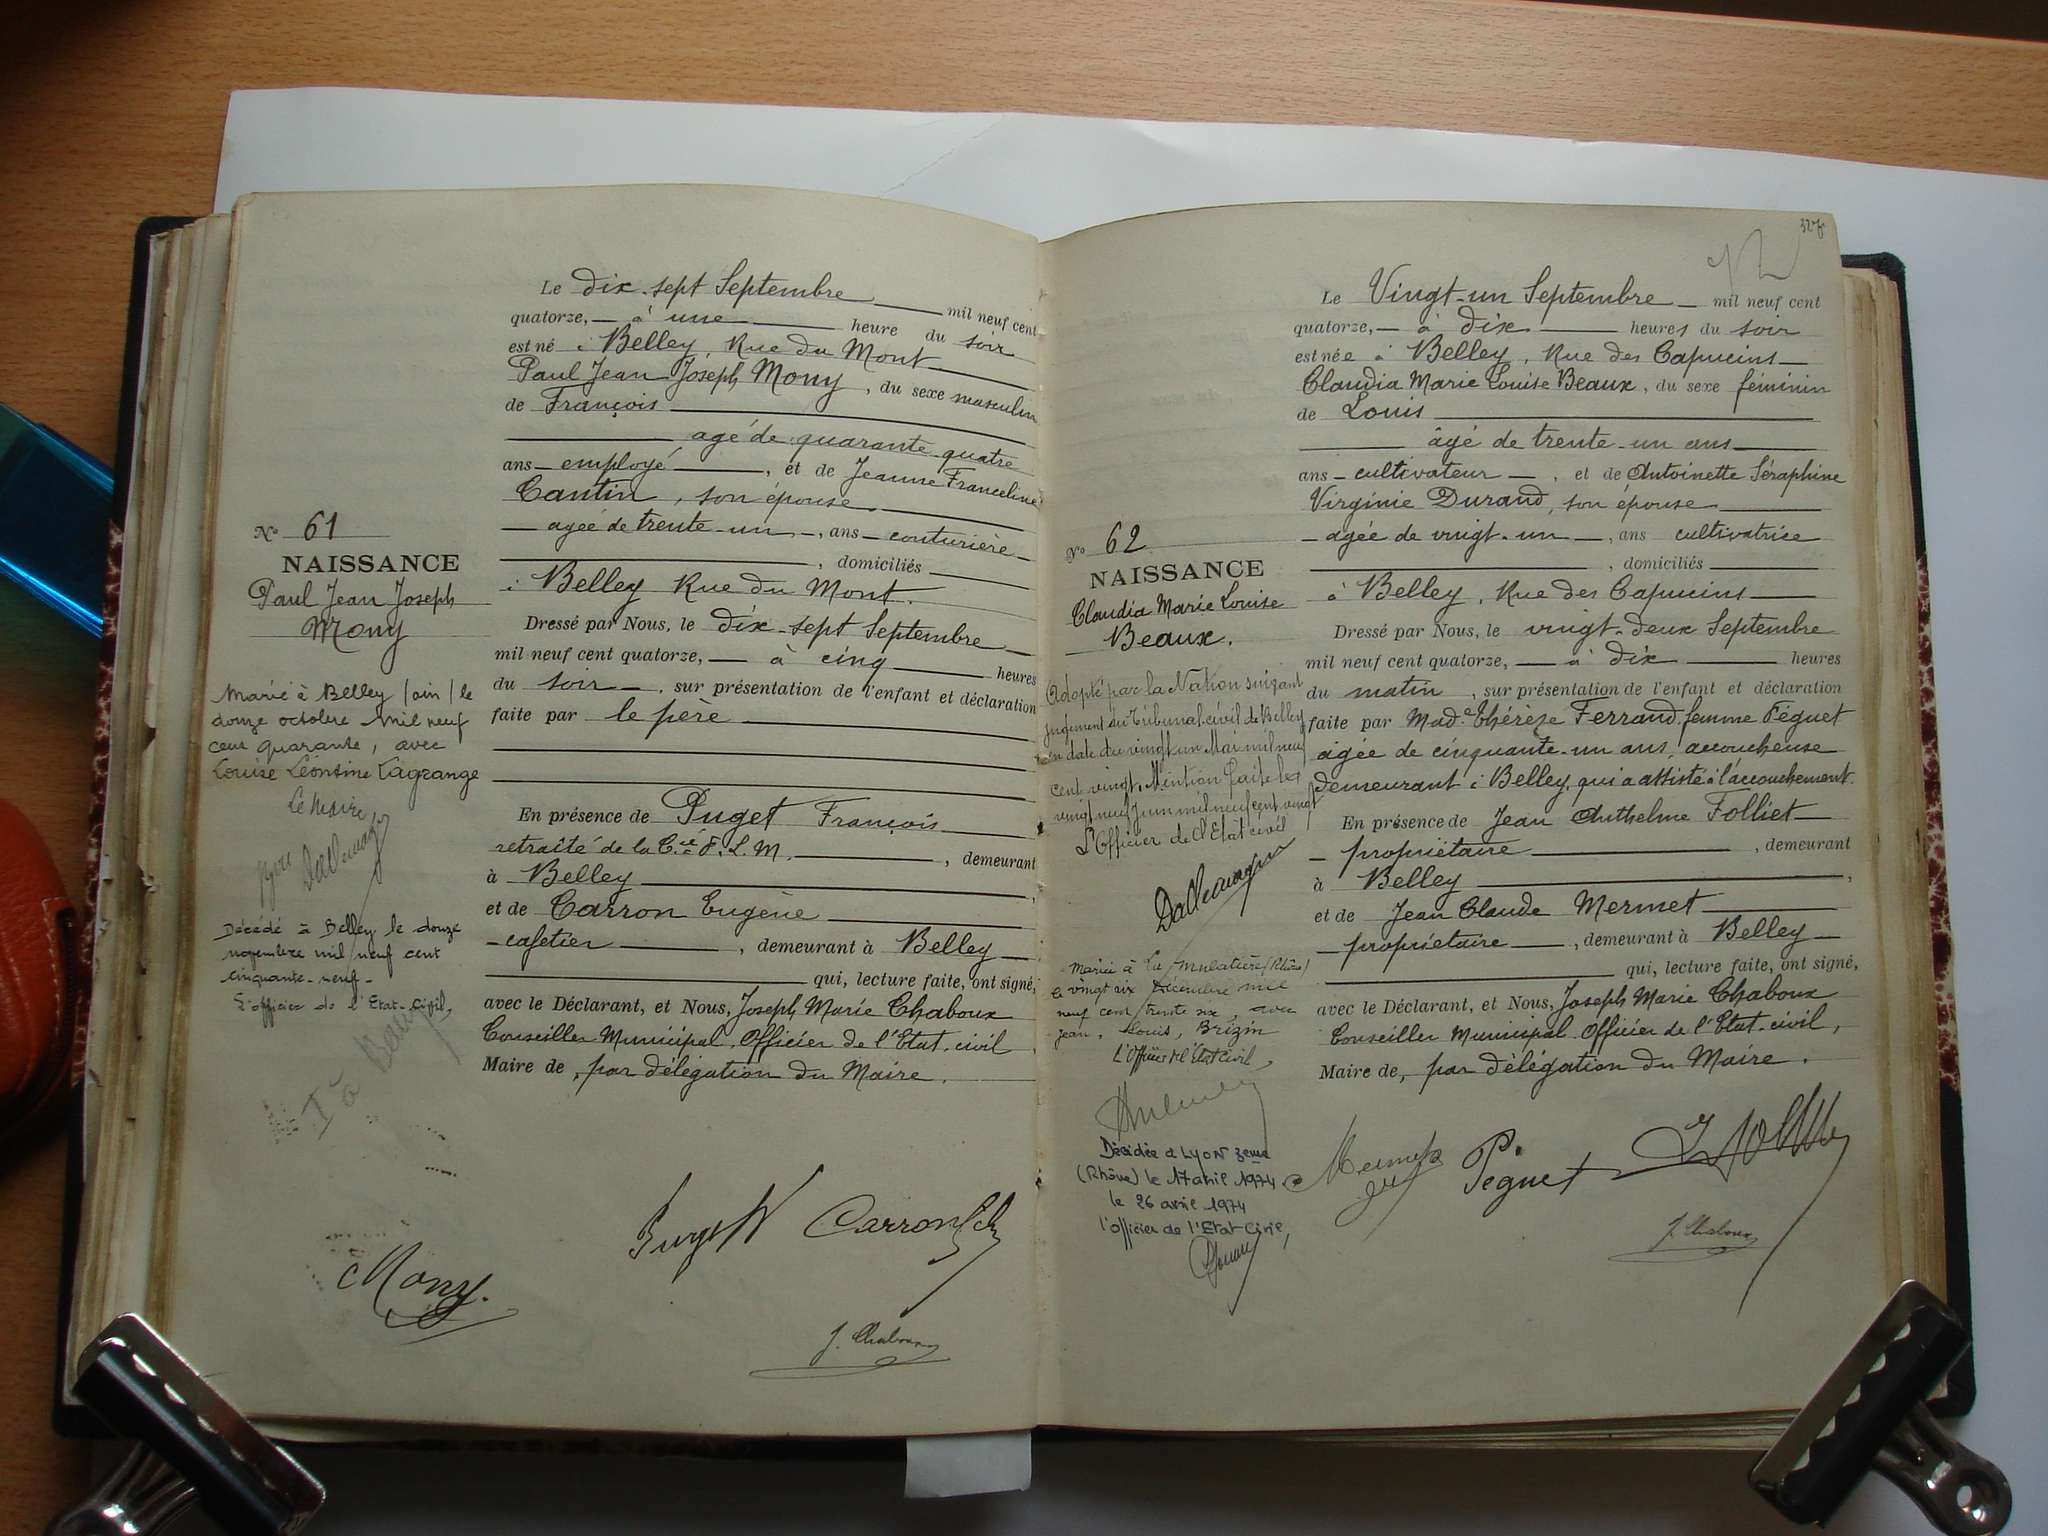 Le dix-sept Septembre mil neuf cent
quatorze, à une heure du soir
est né à Belley, Rue du Mont
Paul Jean Joseph Mony, du sexe masculin
de François
agé de quarante quatre
ans employé, et de Jeanne Franceline
Cantin, son épouse
agée de trente-un, ans couturière
, domiciliés
à Belley Rue du Mont.
Dressé par Nous, le dix-sept Septembre
mil neuf cent quatorze, à cinq heures
du soir, sur présentation de l'enfant et déclaration
faite par le père
En présence de Puget François
retraité de la Cie P. L. M., demeurant
à Belley,
et de Carron Eugène
cafetier, demeurant à Belley
qui, lecture faite, ont signé,
avec le Déclarant, et Nous, Joseph Marie Chaboux
Conseiller Municipal, Officier de l'Etat-civil,
Maire de, par délégation du Maire.
No 61
NAISSANCE
Paul Jean Joseph
Mony
Marié à Belley (ain) le
douze octobre mil neuf
cent quarante, avec
Louise Léontine Lagrange
Le Maire
Décédé à Belley le douze
novembre mil neuf cent
cinquante-neuf-
L'officier de l'Etat-Civil,
Mony
Carron
J. Chaboux
327
Le Vingt-un Septembre mil neuf cent
quatorze, à dix heures du soir
est née à Belley, Rue des Capucins
Claudia Marie Louise Beaux, du sexe féminin
de Louis
âgé de trente-un ans
ans cultivateur, et de Antoinette Séraphine
Virginie Durand, son épouse
agée de vingt-un, ans cultivatrice
, domiciliés
à Belley, Rue des Capucins
Dressé par Nous, le vingt-deux Septembre
mil neuf cent quatorze, à dix heures
du matin, sur présentation de l'enfant et déclaration
faite par Made Thérèse Ferrand, femme Péguet
agée de cinquante-un ans, accoucheuse
demeurant à Belley, qui a assisté à l'accouchement.
En présence de Jean Anthelme Folliet
propriétaire, demeurant
à Belley,
et de Jean Claude Mermet
propriétaire, demeurant à Belley
qui, lecture faite, ont signé,
avec le Déclarant, et Nous, Joseph Marie Chaboux
Conseiller Municipal Officier de l'Etat-civil,
Maire de, par délégation du Maire.
No 62
NAISSANCE
Claudia Marie Louise
Beaux.
Adopté par la Nation suivant
jugement du Tribunal civil de Belley
en date du vingt un Mai mil neuf
cent vingt. Mention faite le
vingt neuf Juin mil neuf cent vingt
L'Officier de l'Etat civil
Mariée à La Mulatière (Rhône)
le vingt six Décembre mil
neuf cent trente six, avec
Jean, Louis, Brizin
L'Officier de l'Etat Civil
Décédée à LYON 3eme
(Rhône) le 17 avril 1974.
le 26 avril 1974
l'officier de l'Etat Civil,
Peguet
J. Chaboux